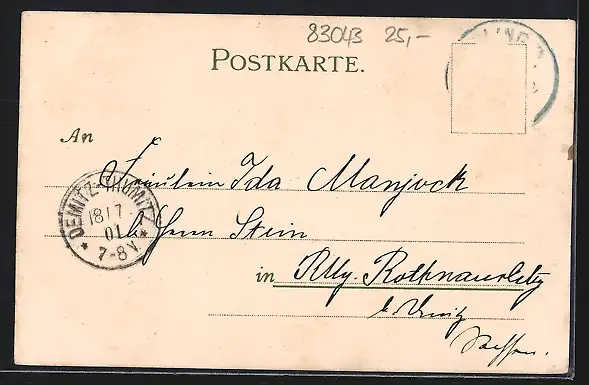 83043 25,-
POSTKARTE.
An
Fräulein Ida Manjock
DEMITZ-THUMITZ
18 1 7
01
7-8V.
b/ Herrn Stein
in Rttg. Rothnausslitz
Sachsen.